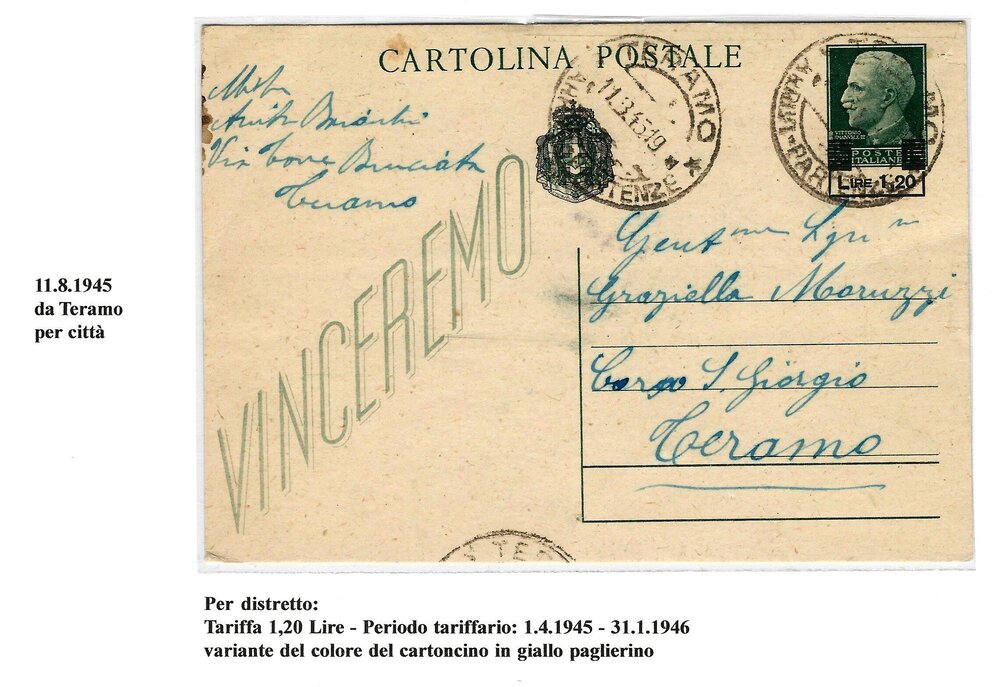 CARTOLINA POSTALE
Mitt.
Anita
Via Torre Bruciata
Teramo
TERAMO
PARTENZE
VITTORIO
EMANUELE III
POSTE
ITALIANE
LIRE 1,20
PARTENZE
VINCEREMO
Gent
Graziella Moruzzi
Corso S. Giorgio
Teramo
TER
11.8.1945
da Teramo
per città
Per distretto:
Tariffa 1,20 Lire - Periodo tariffario: 1.4.1945 - 31.1.1946
variante del colore del cartoncino in giallo paglierino